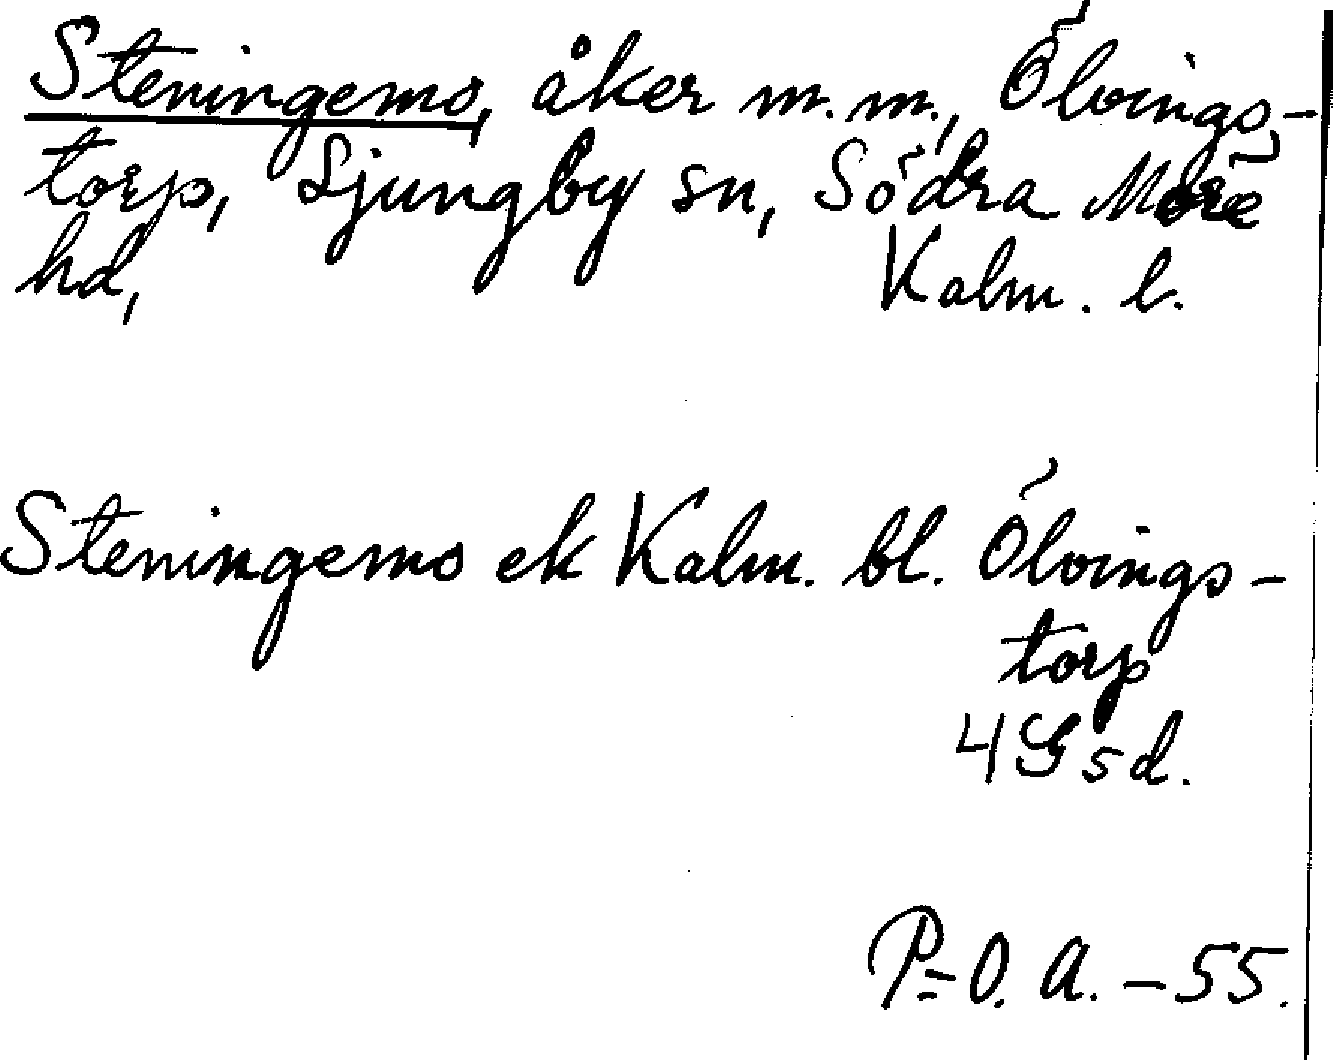 Steningemo, åker m.m., Ölvings-
torp, Ljungby sn, Södra Möre
hd, Kalm. l.
Steningemo ek Kalm. bl. Ölvings-
torp
4 G s d.
P-O. A. - 55.